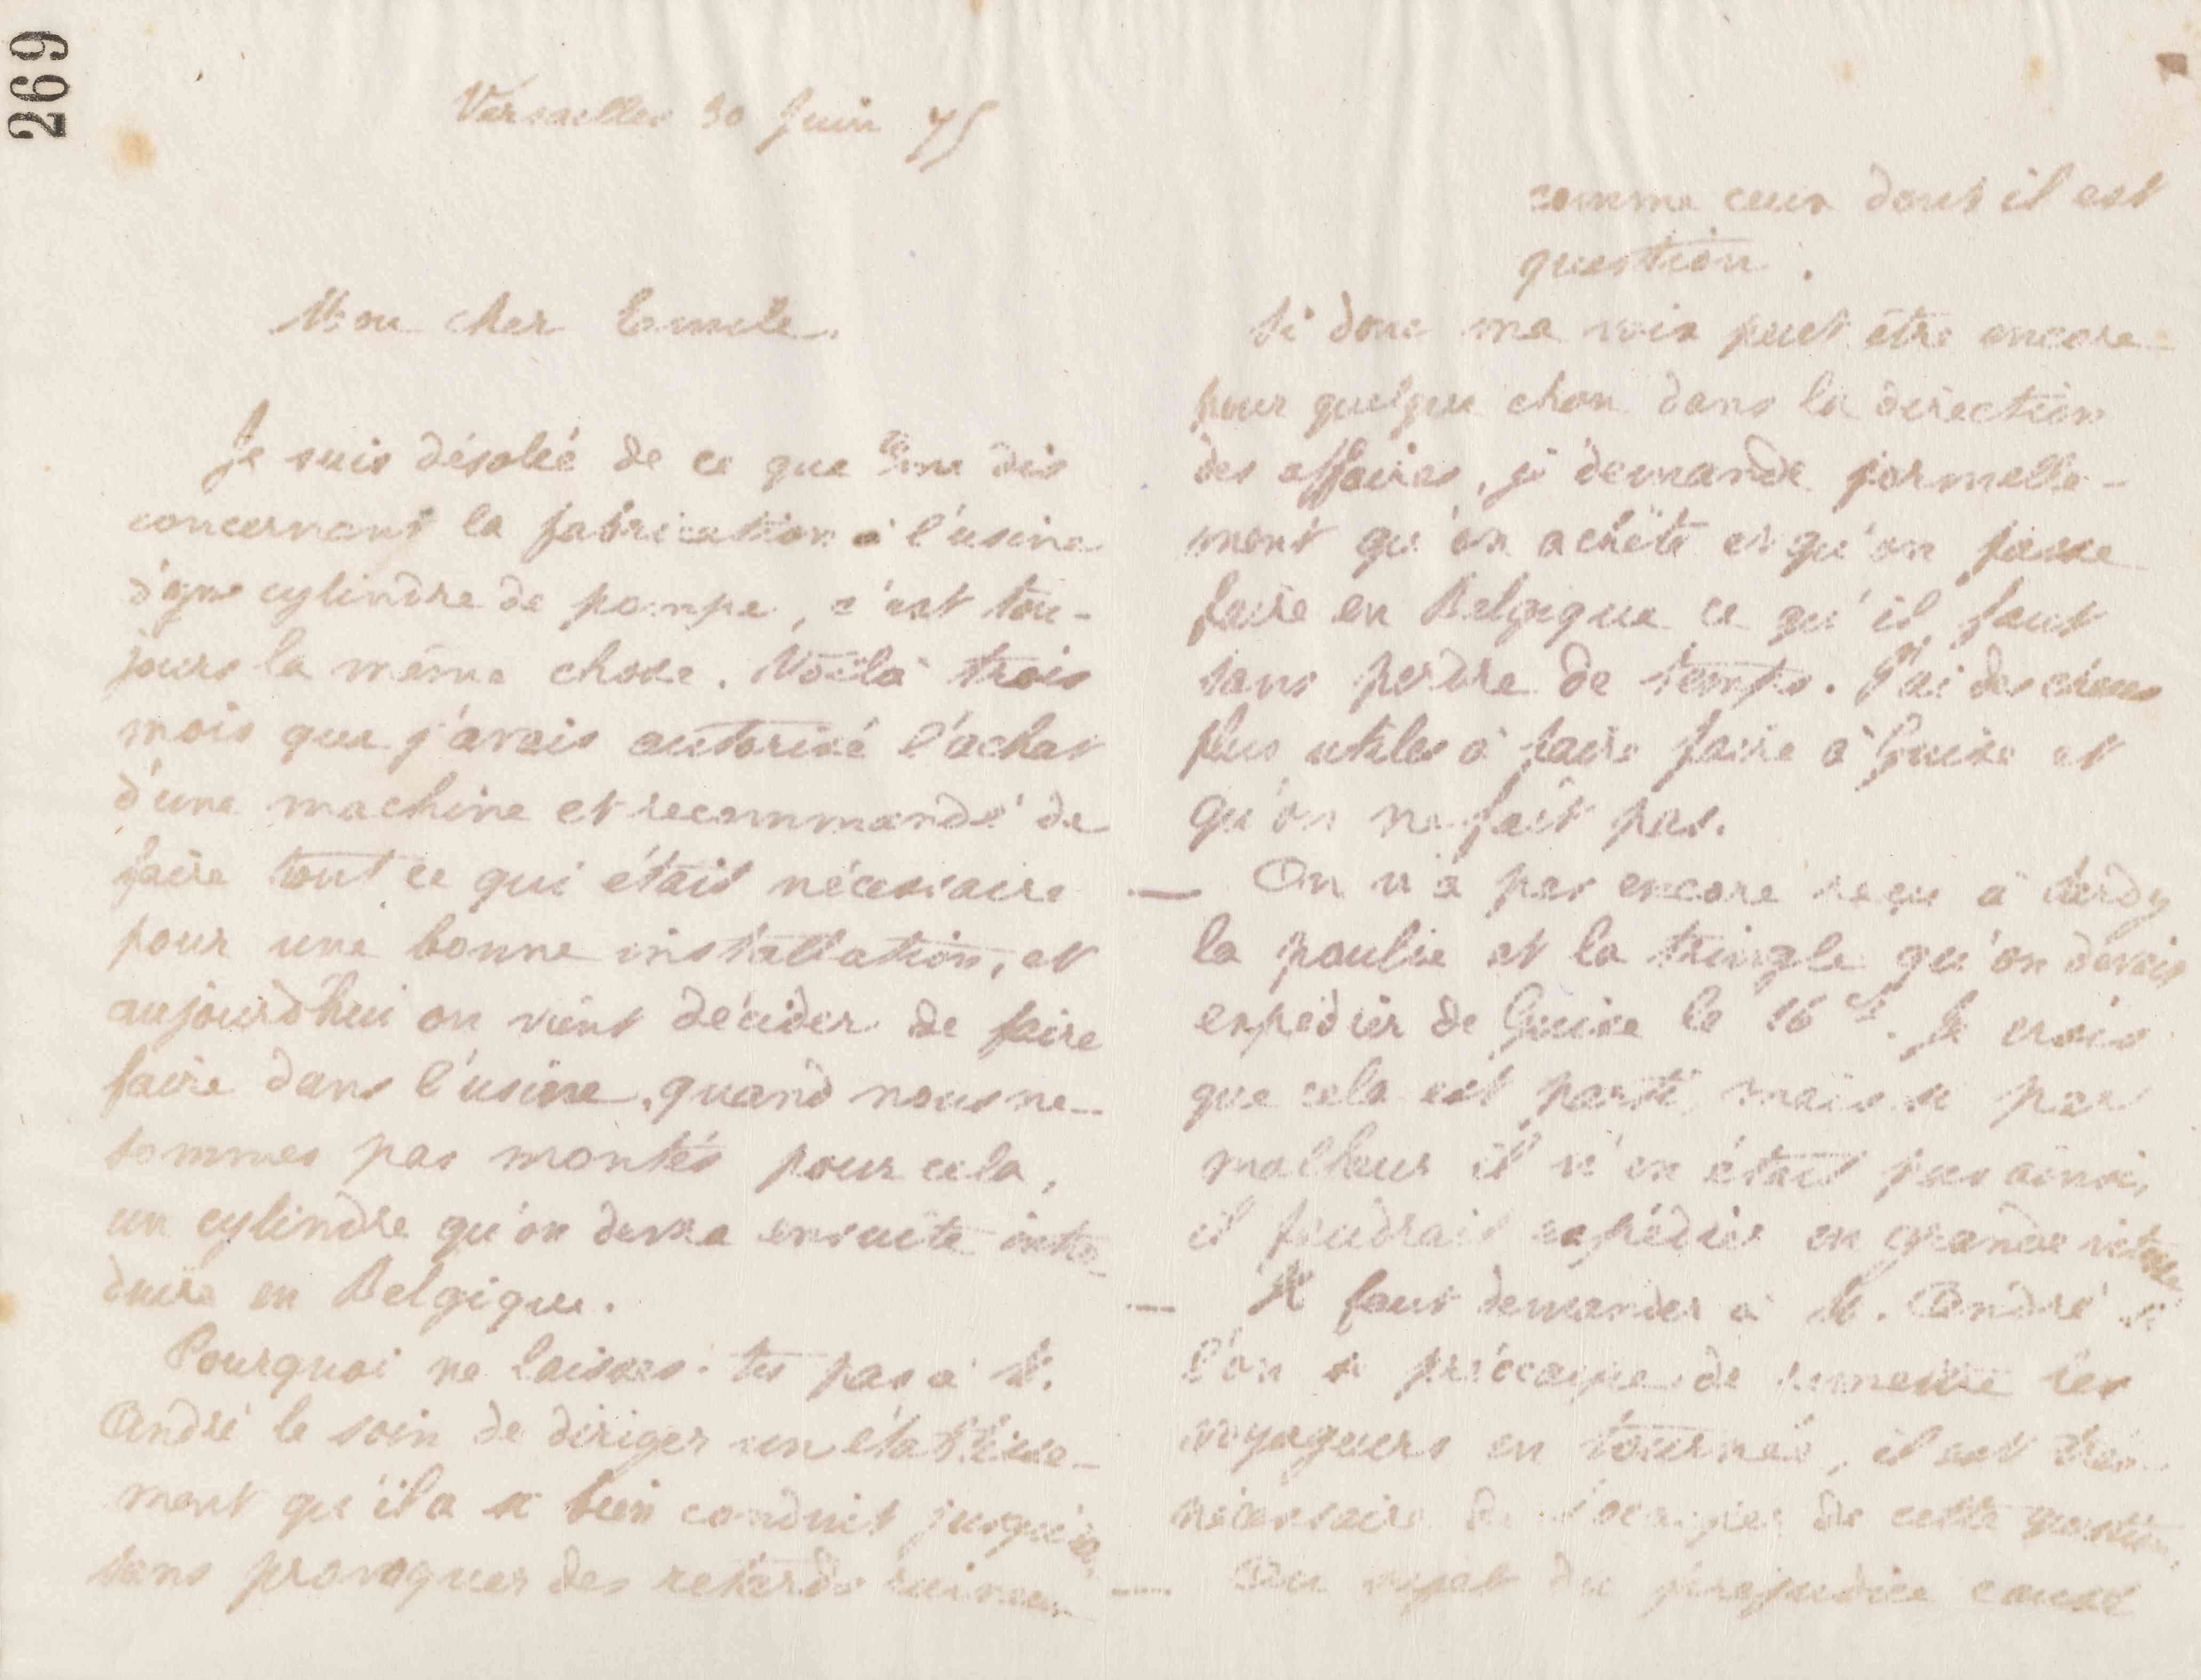 269
Versailles 30 Juin 75
Mon cher Emile.
Je suis désolé de ce que tu me dis
concernant la fabrication à l'usine
d'un cylindre de pompe, c'est tou-
jours la même chose. Voilà trois
mois que j'avais autorisé l'achat
d'une machine et recommandé de
faire tout ce qui était nécessaire
pour une bonne installation, et
aujourd'hui on vient décider de faire
faire dans l'usine, quand nous ne
sommes pas montés pour cela,
un cylindre qu'on devra ensuite intro-
duire en Belgique.
Pourquoi ne laisses-tu pas à M.
André le soin de diriger un établisse-
ment qu'il a si bien conduit jusqu'ici,
sans provoquer des retards ruineux
comme ceux dont il est
question.
Si donc ma voix peut être encore
pour quelque chose dans la direction
des affaires, je demande formelle-
ment qu'on achète et qu'on fasse
faire en Belgique ce qu'il faut
sans perdre de temps. J'ai des choses
plus utiles à faire faire à Guise et
qu'on ne fait pas.
— On n'a pas encore reçu à
la poulie et la tringle qu'on devait
expédier de Guise le 16 ct. Je crois
que cela est parti, mais si par
malheur il n'en était pas ainsi,
il faudrait expédier en grande vitesse
— Il faut demander à M. André si
l'on se préoccupe de remettre les
voyageurs en tournée, il est très
nécessaire de s'occuper de cette question.
— Au sujet du préjudice causé